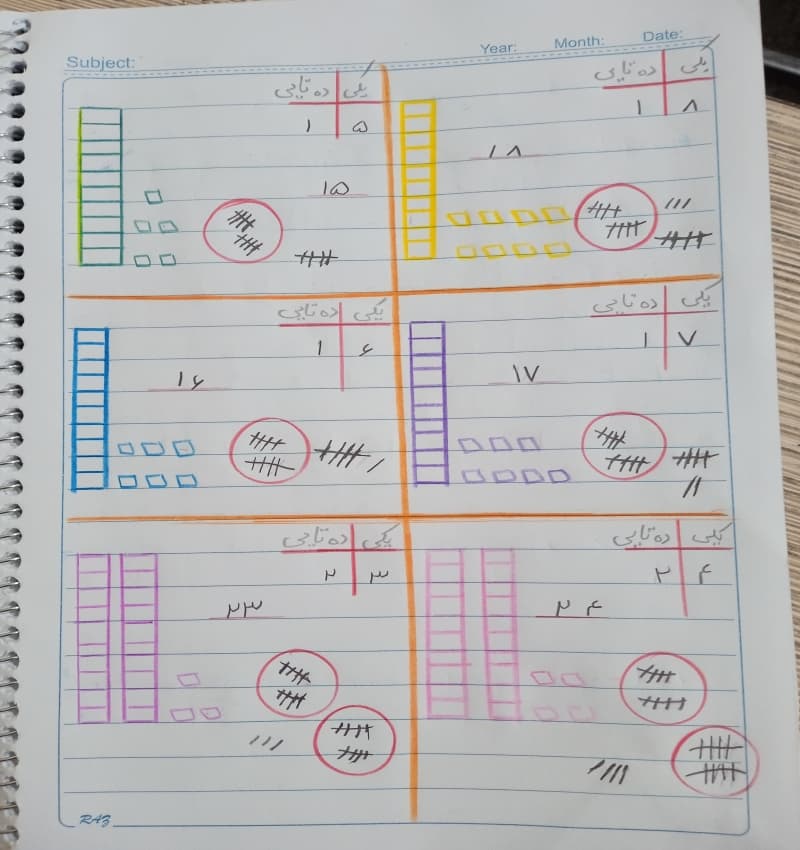 Subject: Year: Month: Date:
یکی ده‌تایی
۵ ۱
۱۵
یکی ده‌تایی
۸ ۱
۱۸
یکی ده‌تایی
۶ ۱
۱۶
یکی ده‌تایی
۷ ۱
۱۷
یکی ده‌تایی
۳ ۲
۲۳
یکی ده‌تایی
۴ ۲
۲۴
RAZ